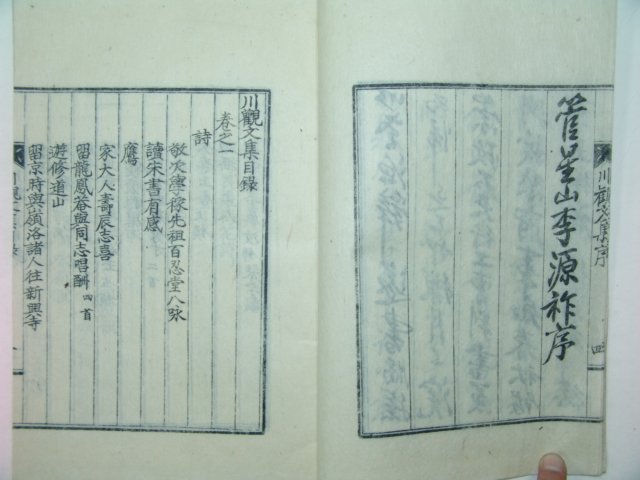 川觀文集序
四
管星山李源祚序
川觀文集目錄
卷之一
詩
敬次學稼先祖百忍堂八咏
讀宋書有感
鷹
家大人壽辰志喜
留龍鳳菴與同志唱酬 四首
遊修道山
留京時與嶺洛諸人往新興寺